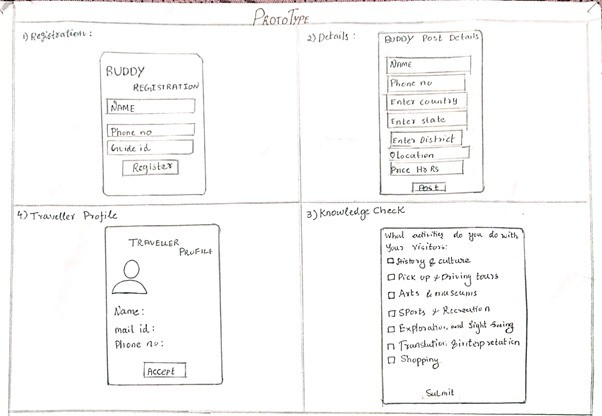 PROTOTYPE
1) Registration :
BUDDY
REGISTRATION
NAME
Phone no
Guide id
Register
2) Details :
BUDDY Post Details
NAME
Phone no
Enter country
Enter state
Enter District
location
Price Ho Rs
Post
4) Traveller Profile
TRAVELLER
PROFILE
Name :
mail id :
Phone no :
Accept
3) Knowledge Check
What activities do you do with
Your Visitors:
History & culture
Pick up & Driving tours
Arts & museums
Sports & Recreation
Exploration and Sight Seeing
Translation & interpretation
Shopping
Submit